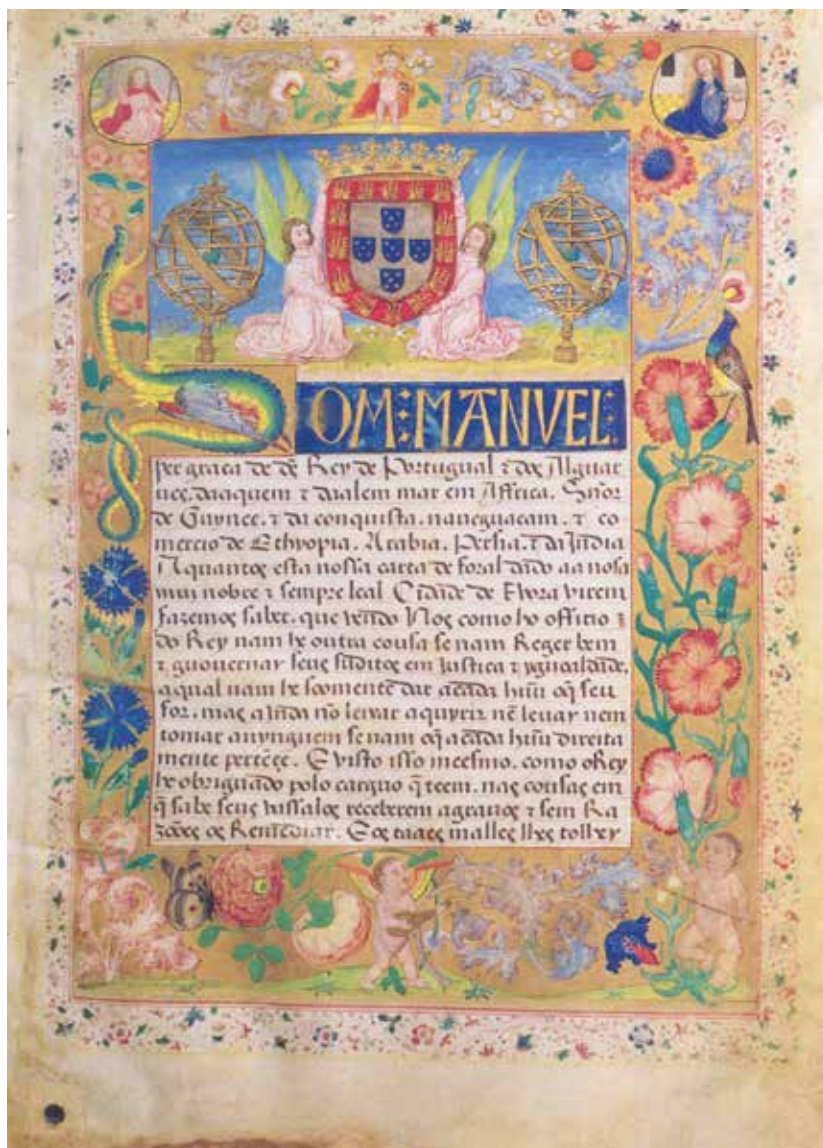 DOM: MANVEL:
per graca de ds̃ Rey de Portugual ⁊ dos Alguar
ues. daaquem ⁊ daalem mar em Affrica. Sñor
de Guynee. ⁊ da conquista. naueguacam. ⁊ co
mercio de Ethyopia. Arabia. Persia. ⁊ da India
A quantos esta nossa carta de foral dado aa nosa
mui nobre ⁊ sempre leal Cidade de Euora virem
fazemos saber. que vendo Nos como ho officio
do Rey nam he outra cousa se nam Reger bem
⁊ guouernar seus suditos em Justica ⁊ ygualdade.
a qual nam he soomente dar a cada huũ oq̃ seu
for. mas ainda nõ leixar aquyrir nẽ leuar nem
tomar a nynguem se nam oq̃ a cada huũ direita
mente pertẽçe. E visto isso meesmo. como oRey
he obriguado polo carguo q̃ teem. nas cousas em
q̃ sabe seus vassalos receberem agrauos ⁊ sem Ra
zoões os Remediar. E os taaes malles lhes tolher